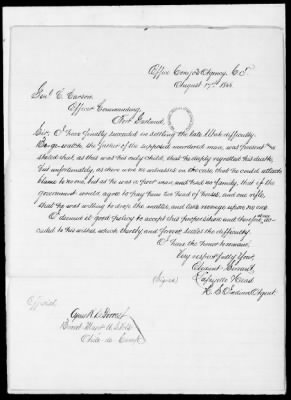 Office Conejos Agency, C.T.
August 17th 1866
Genl C. Carson,
Officer Commanding,
Fort Garland.
Sir: I have finally succeeded in settling the late Utah difficulty.
the father of the supposed murdered man, was present and
stated that, as this was his only child, that he deeply regretted his death,
But unfortunately, as there were no witnesses in the case, that he could attach
blame to no one, but as he was a poor man, and had no family, that if the
government would agree to pay him two head of horses, and one rifle,
that he was willing to drop the matter, and take revenge upon no one.
I deemed it good policy to accept this proposition and therefore
ceded to his wishes, which thereby and forever settles the difficulty.
I have the honor to remain,
Very respectfully Your,
Obedient Servant,
(Signed) Lafayette Head
U.S. Indian Agent.
Official